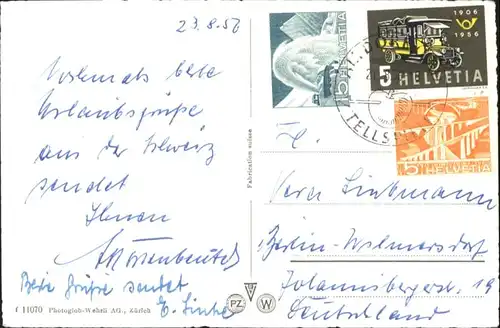 23.8.56
Nochmals beste
Urlaubsgrüße
aus der Schweiz
sendet
Ihnen
Beste Grüße sendet
E. Linke
f 11070 Photoglob-Wehrli AG., Zürich
Fabrication suisse
PZ W
HELVETIA
1906
1956
5 HELVETIA
5 HELVETIA
TELLS
Vera Linkmann
Berlin-Wilmersdorf
Johannisbergerstr. 19
Deutschland